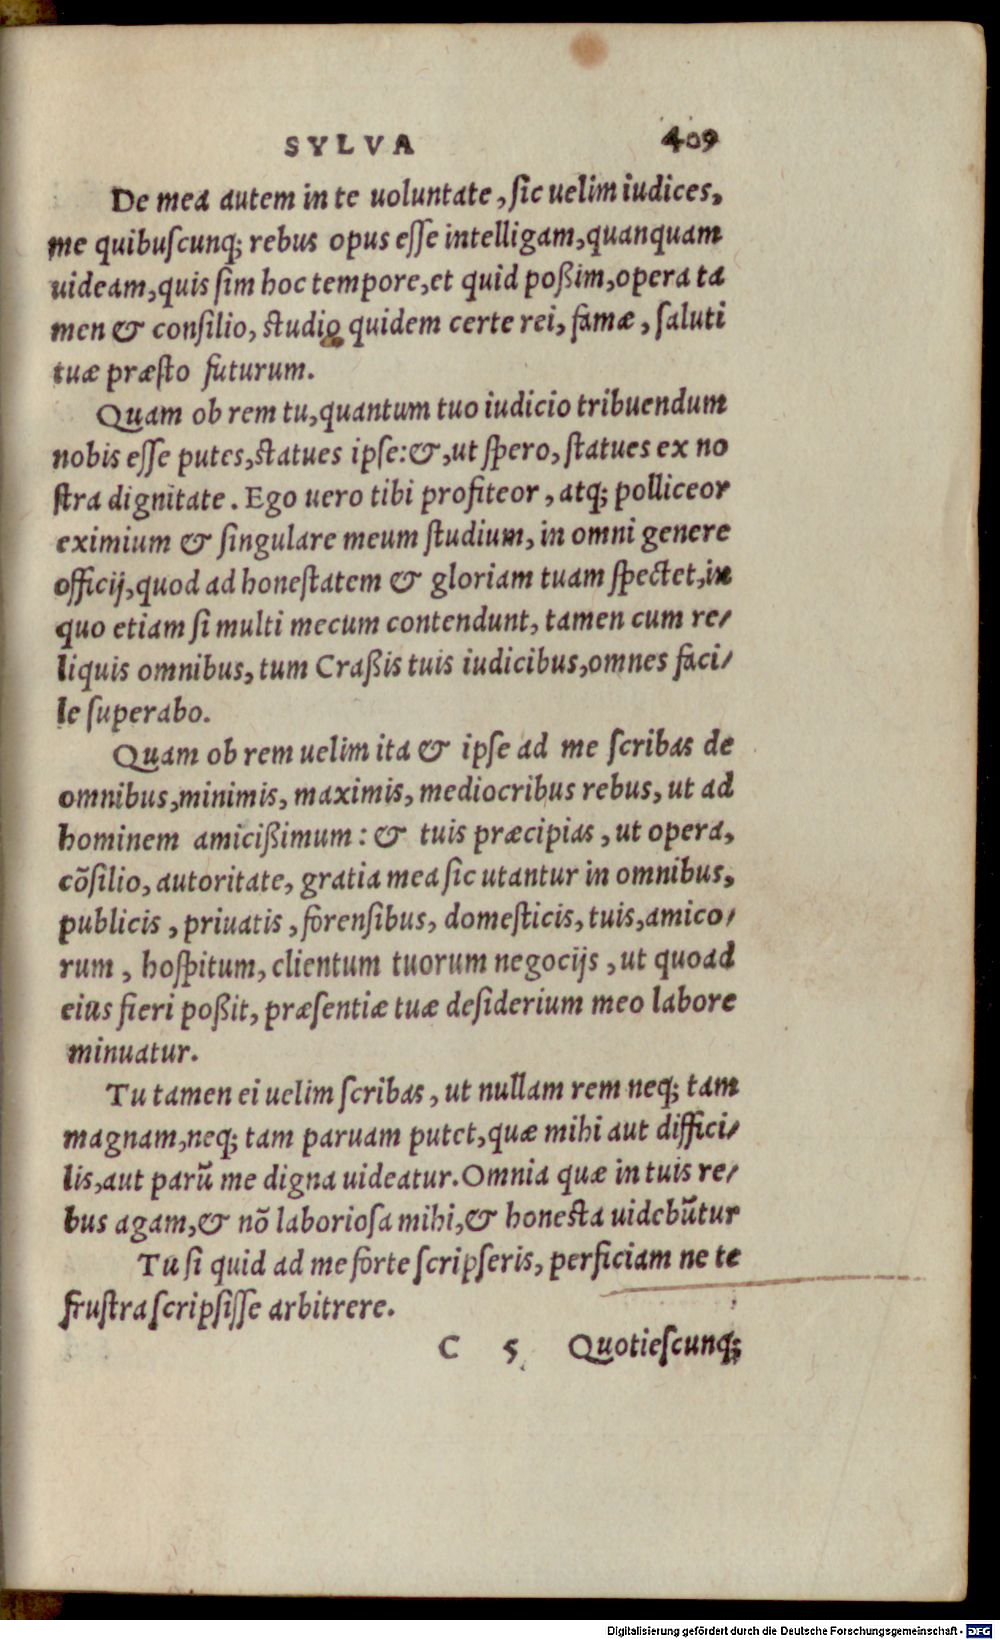 SYLVA 409
De mea autem in te uoluntate, sic uelim iudices,
me quibuscunq; rebus opus esse intelligam, quanquam
uideam, quis sim hoc tempore, et quid poßim, opera ta
men & consilio, studio quidem certe rei, famæ, saluti
tuæ præsto futurum.
Quam ob rem tu, quantum tuo iudicio tribuendum
nobis esse putes, statues ipse: &, ut spero, statues ex no
stra dignitate. Ego uero tibi profiteor, atq; polliceor
eximium & singulare meum studium, in omni genere
officij, quod ad honestatem & gloriam tuam spectet, in
quo etiam si multi mecum contendunt, tamen cum re/
liquis omnibus, tum Craßis tuis iudicibus, omnes faci/
le superabo.
Quam ob rem uelim ita & ipse ad me scribas de
omnibus, minimis, maximis, mediocribus rebus, ut ad
hominem amicißimum: & tuis præcipias, ut opera,
cõsilio, autoritate, gratia mea sic utantur in omnibus,
publicis, priuatis, forensibus, domesticis, tuis, amico/
rum, hospitum, clientum tuorum negocijs, ut quoad
eius fieri poßit, præsentiæ tuæ desiderium meo labore
minuatur.
Tu tamen ei uelim scribas, ut nullam rem neq; tam
magnam, neq; tam paruam putet, quæ mihi aut diffici/
lis, aut parũ me digna uideatur. Omnia quæ in tuis re/
bus agam, & nõ laboriosa mihi, & honesta uidebũtur
Tu si quid ad me forte scripseris, perficiam ne te
frustra scripsisse arbitrere.
C 5 Quotiescunq;
Digitalisierung gefördert durch die Deutsche Forschungsgemeinschaft - DFG